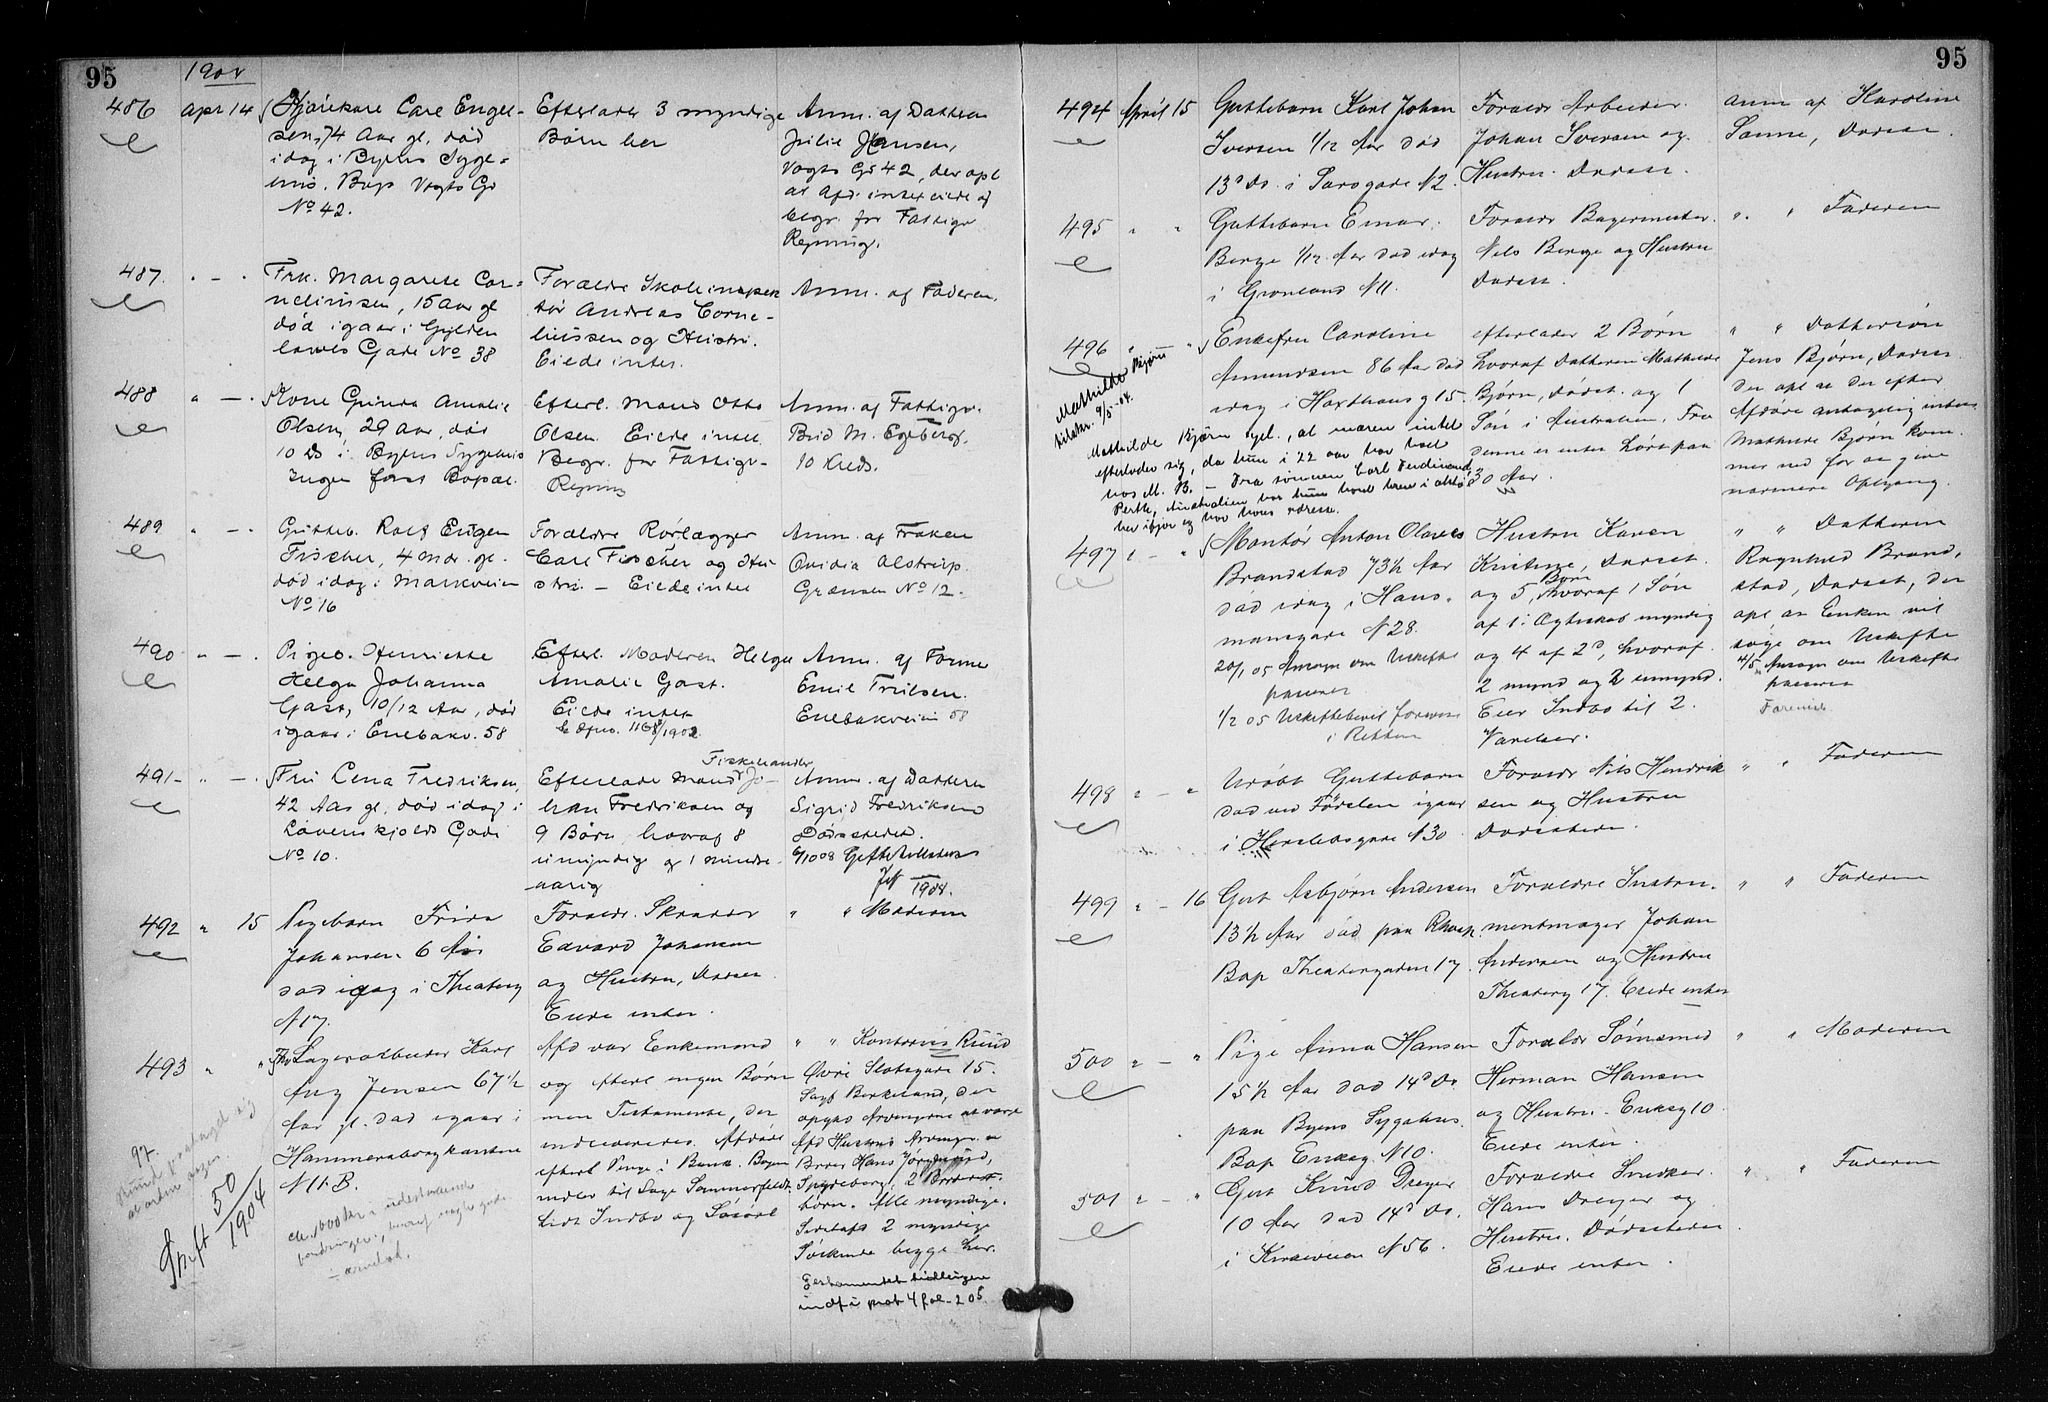 95
1904
486 Apr 14 Kjørekarl Carl Engel-
sen, 74 Aar gl. død
idag i Byens Syge-
hus. Bop. Vogts Gd
No 42.
Efterlader 3 myndige
Børn her
Anm. af Datteren
Julie Hansen,
Vogts Gd 42, der opl.
at Afd. intet eiede og
begr. for Fattigv.
Regning.
487. " — . Frk. Margarete Cor-
neliussen, 15 Aar gl
død igaar i Gylden
løves Gade No 38
Forældre Skoleinspek
tør Andreas Corne-
liussen og Hustru.
Eiede intet.
Anm. af Faderen.
488 " — . Kone Gunda Amalie
Olsen, 29 Aar, død
10 ds i Byens Sygehus
Ingen fast Bopæl.
Efterl. Mand Otto
Olsen. Eiede intet.
Begr. for Fattigv.
Regning
Anm. af Fattigv.
Bud M. Egeberg,
10 Kreds.
489 " — . Gutteb. Rolf Eugen
Fischer, 4 Mdr. gl.
død idag i Markveien
No 16
Forældre Rørlægger
Carl Fischer og Hu
stru. — Eiede intet
Anm. af Frøken
Ovidia Alstrup.
Grænsen No 12.
490 " — . Pigeb. Henriette
Helga Johanna
Gast, 10/12 Aar, død
igaar i Enebakv. 58
Efterl. Moderen Helga
Amalie Gast.
Eiede intet
Anm. af Former
Emil Truelsen.
Enebakveien 58
491 " — . Fru Lena Fredriksen,
42 Aar gl, død idag i
Løvenskjolds Gade
No 10.
Fiskehandler
Efterlader Mand Jo-
han Fredriksen og
9 Børn, hvoraf 8
umyndig og 1 mindre-
aarig
Anm. af Datteren
Sigrid Fredriksen
Dødsstedet.
1904.
492 " 15 Pigebarn Frida
Johansen 6 Aar
død idag i Theaterg
N 17.
Forældr. Skrædder
Edvard Johansen
og Hustru, Dødsst.
Eiede intet.
" " Moderen
493 " " Lagerarbeider Karl
Aug Jensen 67 1/2
Aar gl. død igaar i
Hammersborgkanten
N 11 B.
Afd var Enkemand
og efterl ingen Børn
men Testamente, der
indleveredes. Afdøde
efterl Penge i Bank. Bogen
indlev til Lage Sommerfeldt
lidt Indbo og Løsøre
" " Kontorist Ruud
Øvre Slotsgade 15.
Sagf Birkeland, der
opgav Arvingerne at være
Afd Hustrus Arvinger
Broder Hans
Spydeberg, 2 Broder
børn. Alle myndige.
2 myndige
Søskende begge her.
Testamentet
indf i prot 4 fol. 205.
Skift 50/1904
95
494 April 15 Guttebarn Karl Johan
Iversen 1/12 Aar død
13d Ds. i Sarsgade N 2.
Forældr Arbeider
Johan Iversen og
Hustru. Dødsst.
Anm af Karoline
Sanne, Dødsst.
495 " " Guttebarn Einar
Berge 1/12 Aar død idag
i Grønland N 11.
Forældr Bagermester
Nils Berge og Hustru
Dødsst.
" " Faderen
496 " " Enkefru Caroline
Amundsen 86 Aar død
idag i Haxthausg 15.
efterlader 2 Børn
hvoraf Datteren Mathilde
Bjørn, Dødsst. og 1
Søn i Australien. Fra
denne er intet hørt paa
30 Aar.
" " Dattersøn
Jens Bjørn, Dødsst.
Der opl at der efter
Afdøde antagelig intet
Mathilde Bjørn kom-
mer ned for at give
nærmere Oplysning.
Mathilde Bjørn
tilstede. 9/5-04.
Mathilde Bjørn opl., at moren intet
efterlader sig, da hun i 22 aar har boet
hos M. B. — Fra sønnen Carl Ferdinand,
Perth, Australien har hun havt brev i okto
ber ifjor og har hans adresse.
497 " — " Montør Anton Olaves
Brandstad 73 1/2 Aar
død idag i Haus-
mansgade N 28.
20/1 05 Ansøgn om Uskifte
passeret
1/2 05 Uskiftebevil forevist
i Retten
Hustru Karen
Kristine, Dødsst.
og 5 Børn, hvoraf 1 Søn
af 1. Ægteskab myndig
og 4 af 2d, hvoraf
2 mynd og 2 umynd.
Eier Indbo til 2
Værelser.
" " Datteren
Ragnhild Brand-
stad, Dødsst, der
opl, at Enken vil
søge om Uskifte
4/5 Ansøgn om Uskifte
passeret
498 " — " Udøbt Guttebarn
død ved Fødselen igaar
i Herslebsgade N 30
Forældr Nils Hendrik
sen og Hustru
Dødsstedet.
" " Faderen
499 " — 16 Gut Asbjørn Andersen
13 1/2 Aar død paa Rhosp.
Bop Theatergaden 17
Forældre Instru-
mentmager Johan
Andersen og Hustru
Theaterg 17. Eiede intet
" " Faderen
500 " — " Pige Anna Hansen
15 1/2 Aar død 14d Ds
paa Byens Sygehus.
Bop Eriksg. N 10.
Forældr Sømsmed
Herman Hansen
og Hustru. Eriksg 10.
Eiede intet.
" " Moderen
501 " — " Gut Knud Dreyer
10 Aar død 14d Ds.
i Kirkeveien N 56.
Forældre Snedker
Hans Dreyer og
Hustru. Dødsstedet
Eiede intet.
" " Faderen